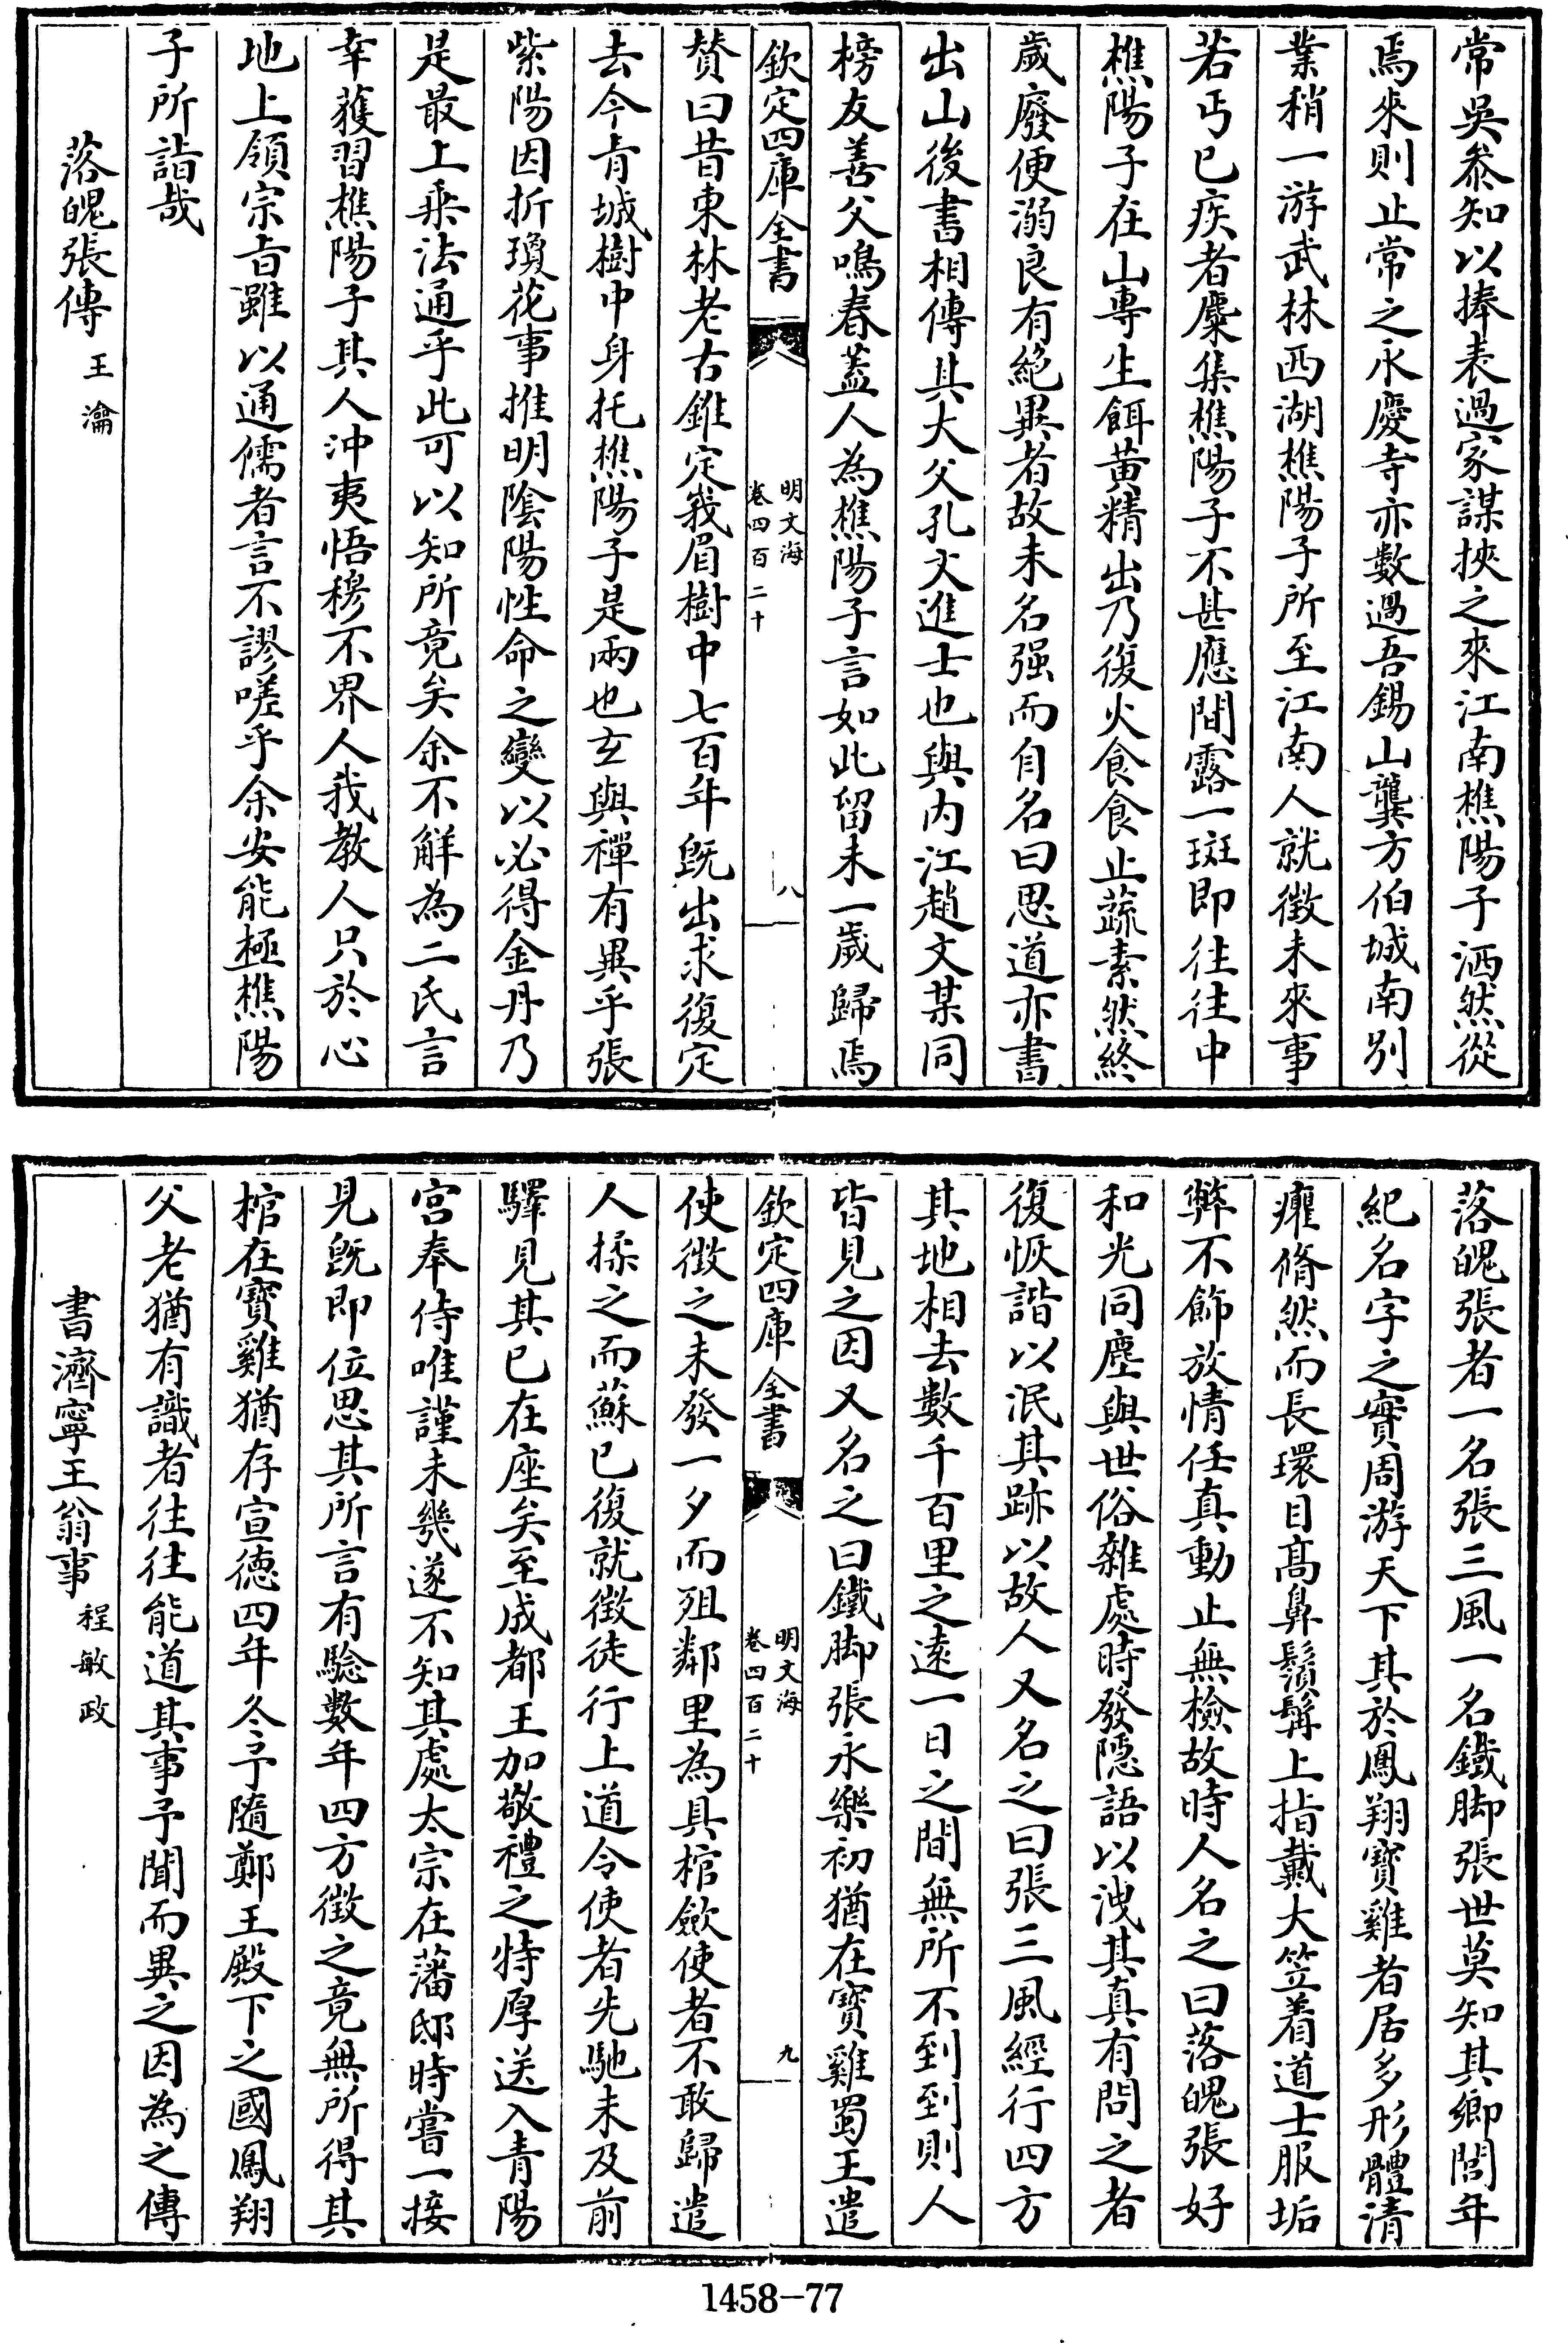 常吳叅知以捧表過家謀挾之來江南樵陽子洒然從
焉來則止常之永慶寺亦數過吾錫山龔方伯城南别
業稍一游武林西湖樵陽子所至江南人就徵未來事
若丐已疾者麇集樵陽子不甚應間露一斑即往往中
樵陽子在山專生餌黄精出乃復火食食止蔬素然終
歲廢便溺良有絶異者故未名强而自名曰思道亦書
出山後書相傳其大父孔文進士也與内江趙文某同
榜友善父鳴春葢人為樵陽子言如此留未一歲歸焉
欽定四庫全書
明文海
卷四百二十
八
贊曰昔東林老古錐定峩眉樹中七百年既出求復定
去今青城樹中身托樵陽子是兩也𤣥與禪有異乎張
紫陽因折瓊花事推明陰陽性命之變以必得金丹乃
是最上乘法通乎此可以知所竟矣余不解為二氏言
幸獲習樵陽子其人沖夷悟穆不界人我教人只於心
地上領宗㫖雖以通儒者言不謬嗟乎余安能極樵陽
子所詣哉
落魄張傳 王瀹
落魄張者一名張三風一名鐵脚張世莫知其鄉閭年
紀名字之實周游天下其於鳳翔寶雞者居多形體清
癯翛然而長環目高鼻鬚髯上指戴大笠着道士服垢
弊不飾放情任真動止無檢故時人名之曰落魄張好
和光同塵與世俗雜處時發隱語以洩其真有問之者
復恢諧以泯其跡以故人又名之曰張三風經行四方
其地相去數千百里之遠一日之間無所不到到則人
皆見之因又名之曰鐵脚張永樂初猶在寶雞蜀王遣
欽定四庫全書
明文海
卷四百二十
九
使徴之未發一夕而殂鄰里為具棺歛使者不敢歸遣
人揉之而蘇已復就徴徒行上道令使者先馳未及前
驛見其已在座矣至成都王加敬禮之特厚送入青陽
宫奉侍唯謹未幾遂不知其處太宗在藩邸時嘗一接
見既即位思其所言有驗數年四方徴之竟無所得其
棺在寶雞猶存宣德四年冬予隨鄭王殿下之國鳳翔
父老猶有識者往往能道其事予聞而異之因為之傳
書濟寧王翁事 程敏政
1458-77